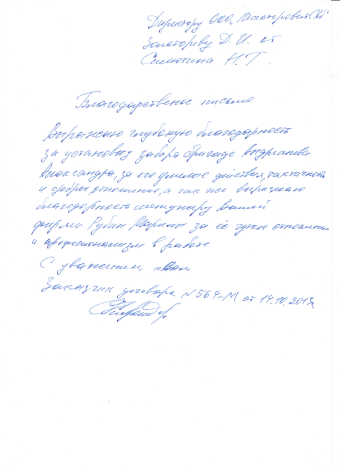 Директору ООО
Золотареву Д. И. от
Н. Т.
Благодарственное письмо
Выражаю глубокую благодарность
за установку забора бригаде Андриянова
Александра, за его умелые действия, тактичность
и доброе отношение, а так же выражаю
благодарность менеджеру вашей
фирмы Рубан Марине за её чуткое отношение
и профессионализм в работе
С уважением,
Заказчик договора № 564-М от 14.10.2013г.